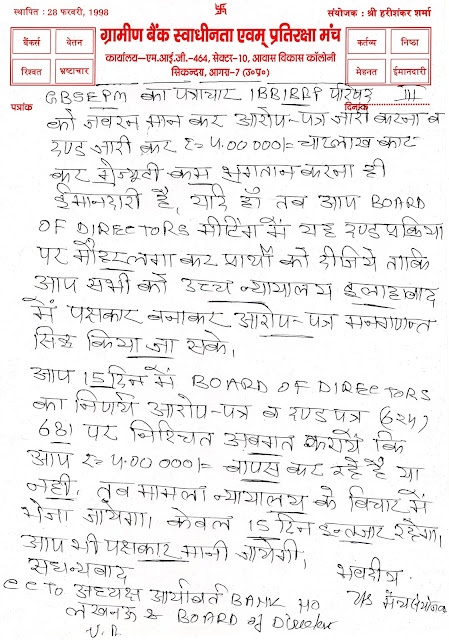 स्थापित : 28 फरवरी, 1998
संयोजक : श्री हरीशंकर शर्मा
ग्रामीण बैंक स्वाधीनता एवम् प्रतिरक्षा मंच
बैंकर्स
वेतन
रिश्वत
भ्रष्टाचार
कर्तव्य
निष्ठा
मेहनत
ईमानदारी
कार्यालय–एम.आई.जी.–464, सेक्टर-10, आवास विकास कॉलोनी
सिकन्दरा, आगरा-7 (उ०प्र०)
पत्रांक
दिनांक
GBSEPM का पत्राचार IBBIBRP परिषद III
को जबरन मान कर आरोप-पत्र जारी करना व
दण्ड जारी कर ₹= 4.00 000/= चार लाख काट
कर ग्रेज्युटी कम भुगतान करना ही
ईमानदारी है, यदि हाँ तब आप BOARD
OF DIRECTORS मीटिंग में यह दण्ड प्रक्रिया
पर मौहर लगा कर प्रार्थी को दीजिये ताकि
आप सभी को उच्च न्यायालय इलाहबाद
में पक्षकार बनाकर आरोप-पत्र मनगणन्त
सिद्ध किया जा सके।
आप 15 दिन में BOARD OF DIRECTORS
का निर्णय आरोप-पत्र व दण्ड पत्र (624)
681 पर निश्चित अवगत करायें कि
आप ₹= 4.00 000/= वापस कर रहे हैं या
नहीं. तब मामला न्यायालय के विचार में
भेजा जायेगा। केवल 15 दिन इन्तजार रहेगा।
आप भी पक्षकार मानी जायेगी।
सधन्यवाद
भवदीय
CC TO अध्यक्ष आर्यावर्त BANK HO
लखनऊ & BOARD of Director
U.P.
मंच संयोजक